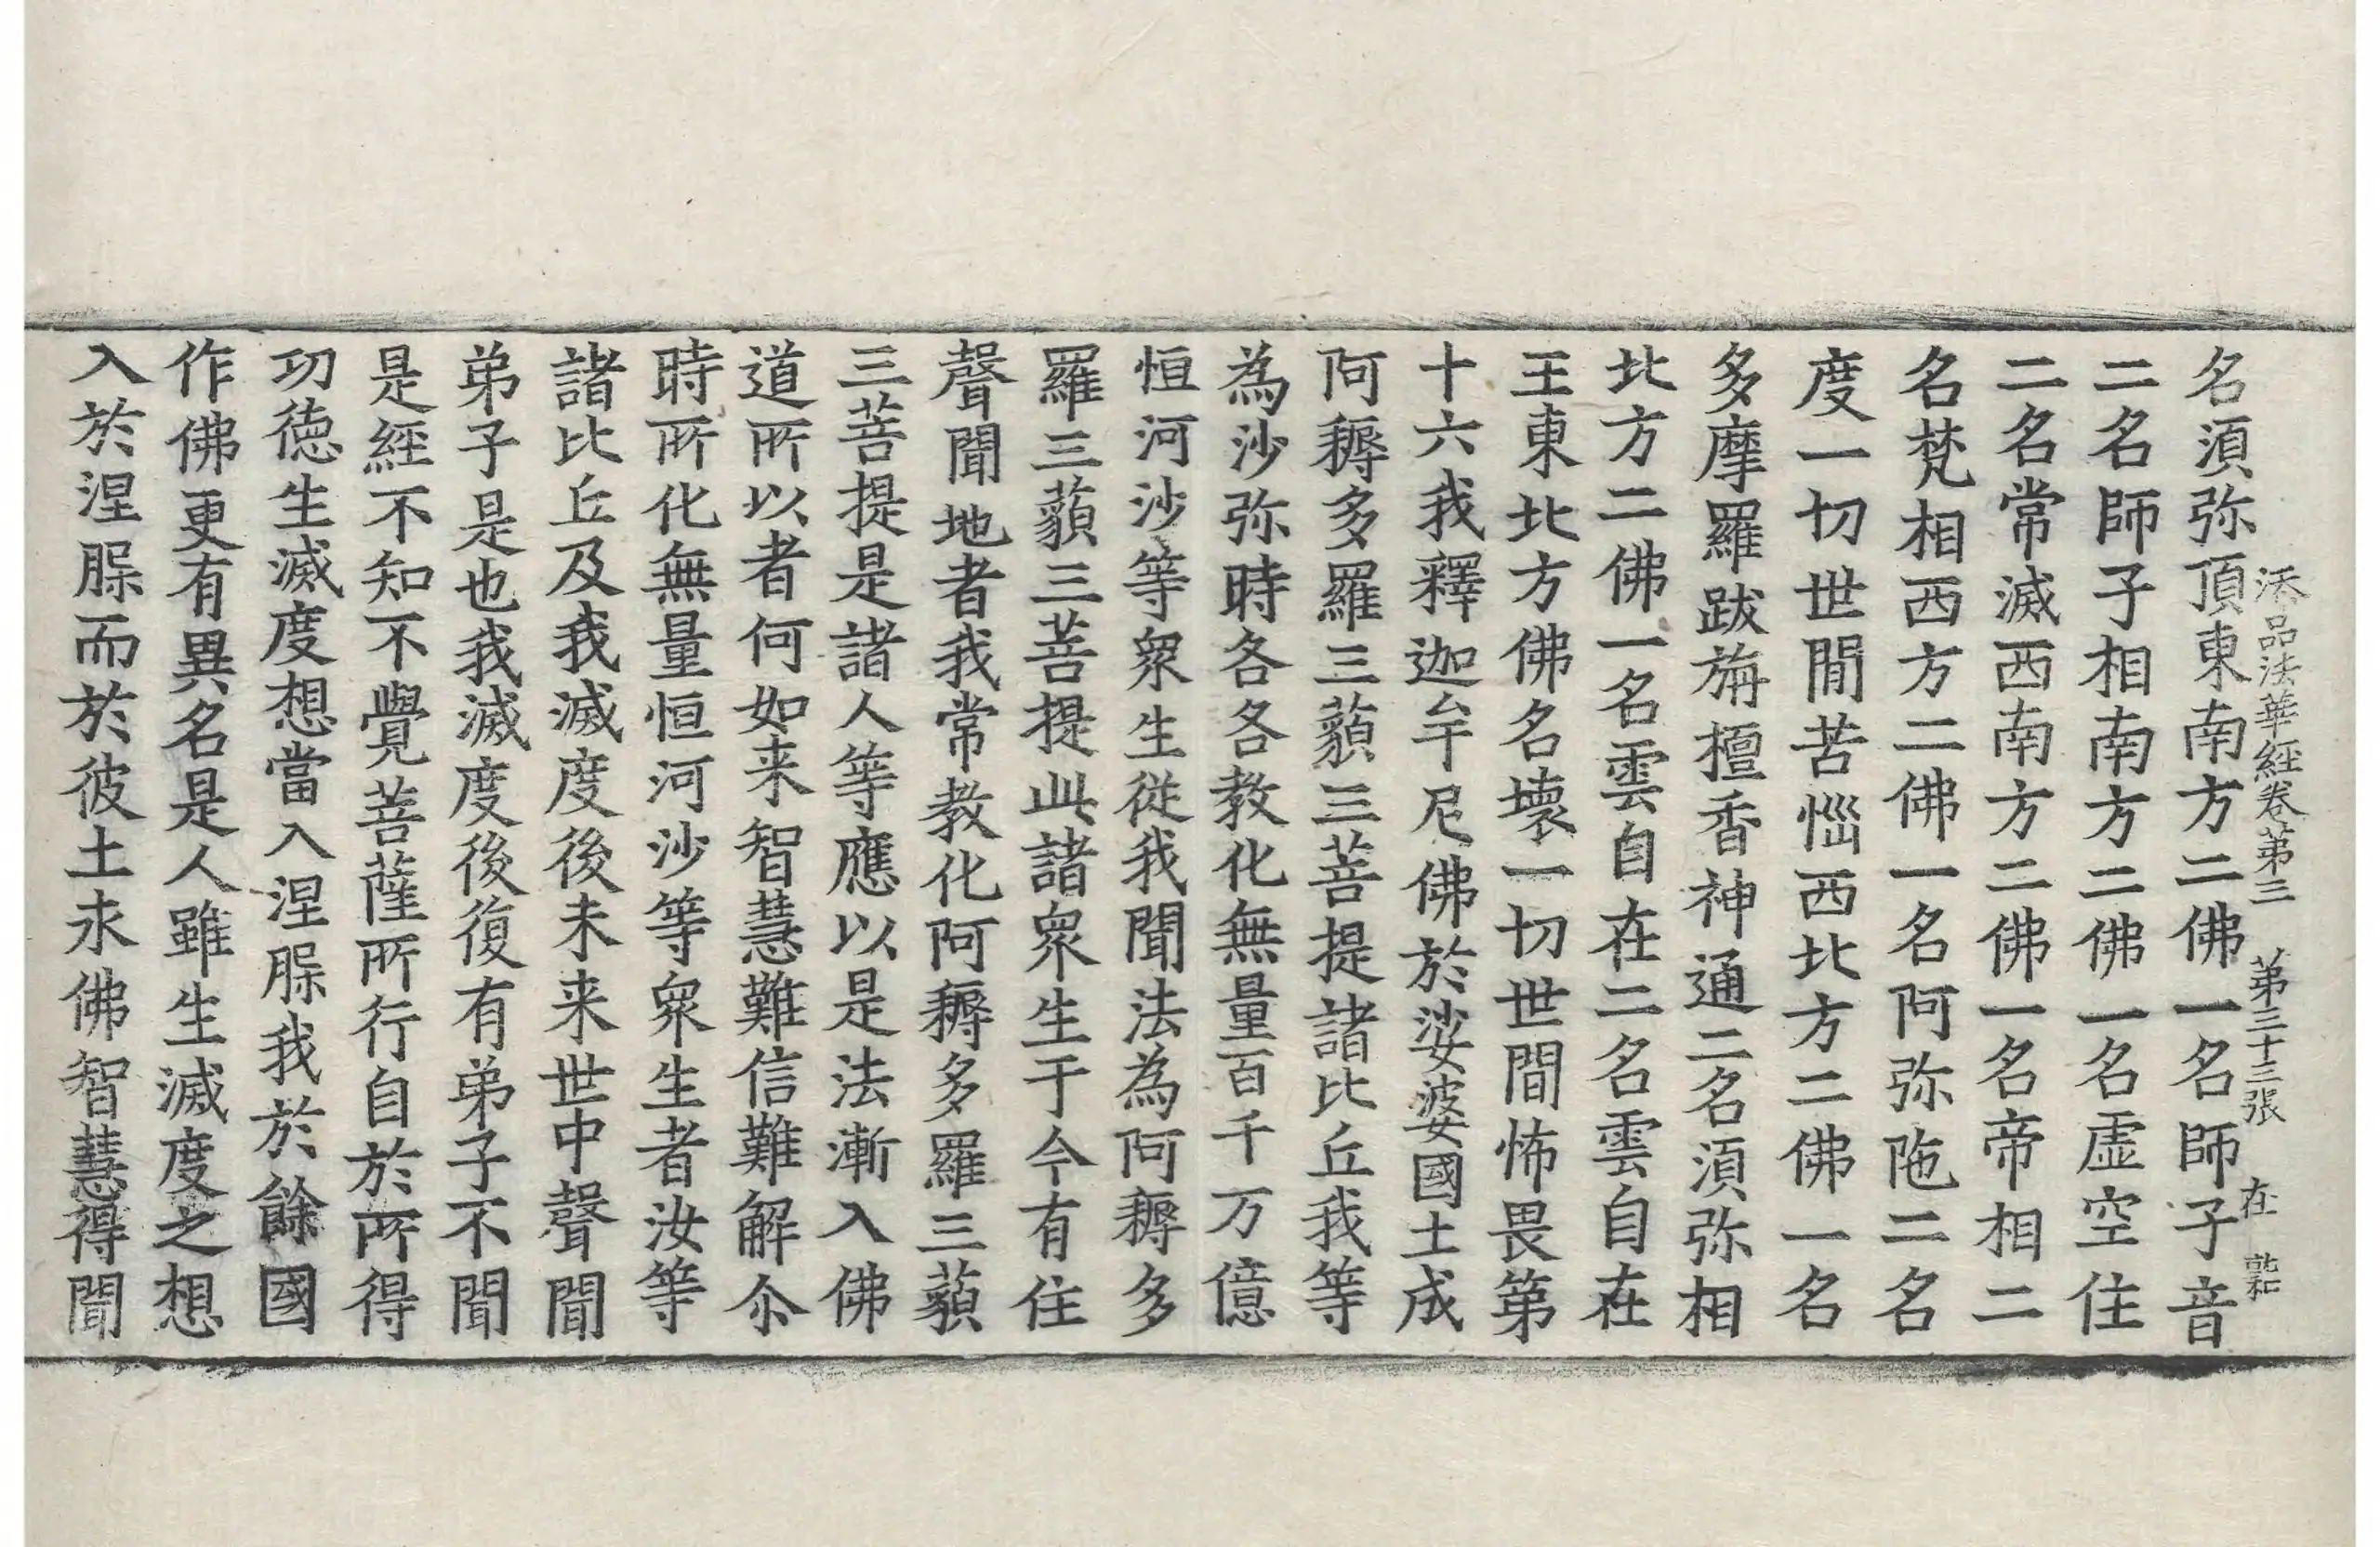 添品法華經卷第三 第三十三張 在
名湏弥頂東南方二佛一名師子音
二名師子相南方二佛一名虛空住
二名常滅西南方二佛一名帝相二
名梵相西方二佛一名阿弥陁二名
度一切世閒苦惱西北方二佛一名
多摩羅跋旃檀香神通二名湏弥相
北方二佛一名雲自在二名雲自在
王東北方佛名壞一切世間怖畏第
十六我釋迦牟尼佛於娑婆國土成
阿耨多羅三藐三菩提諸比丘我等
為沙弥時各各教化無量百千万億
恒河沙等衆生從我聞法為阿耨多
羅三藐三菩提此諸衆生于今有住
聲聞地者我常教化阿耨多羅三藐
三菩提是諸人等應以是法漸入佛
道所以者何如来智慧難信難解尒
時所化無量恒河沙等衆生者汝等
諸比丘及我滅度後未来世中聲聞
弟子是也我滅度後復有弟子不聞
是經不知不覺菩薩所行自於所得
功德生滅度想當入涅槃我於餘國
作佛更有異名是人雖生滅度之想
入於涅槃而於彼土求佛智慧得聞